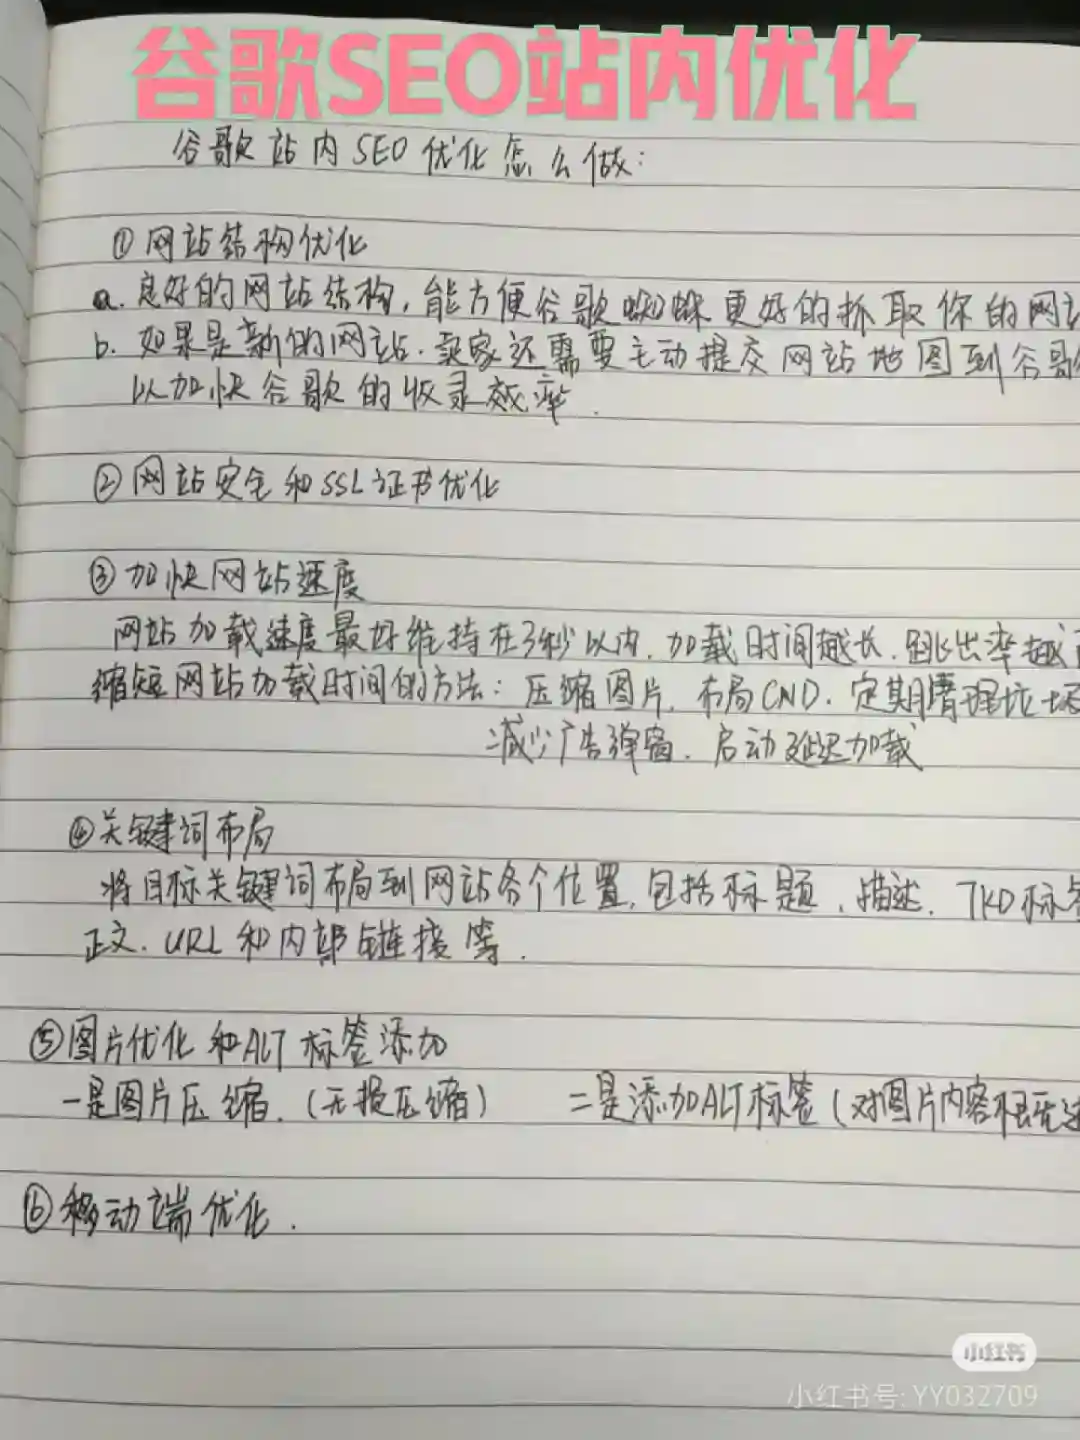 谷歌SEO站内优化
谷歌站内SEO优化怎么做:
①网站结构优化
a. 良好的网站结构,能方便谷歌蜘蛛更好的抓取你的网
b. 如果是新的网站.卖家还需要主动提交网站地图到谷歌
以加快谷歌的收录效率.
②网站安全和SSL证书优化
③加快网站速度
网站加载速度最好维持在3秒以内.加载时间越长.跳出率越
缩短网站加载时间的方法:压缩图片.布局CND.定期清理垃圾
减少广告弹窗.启动延迟加载
④关键词布局
将目标关键词布局到网站各个位置,包括标题.描述.TKD标签
正文.URL和内部链接等.
⑤图片优化和ALT标签添加
一是图片压缩.(无损压缩) 二是添加ALT标签(对图片内容
⑥移动端优化.
小红书
小红书号:YY032709